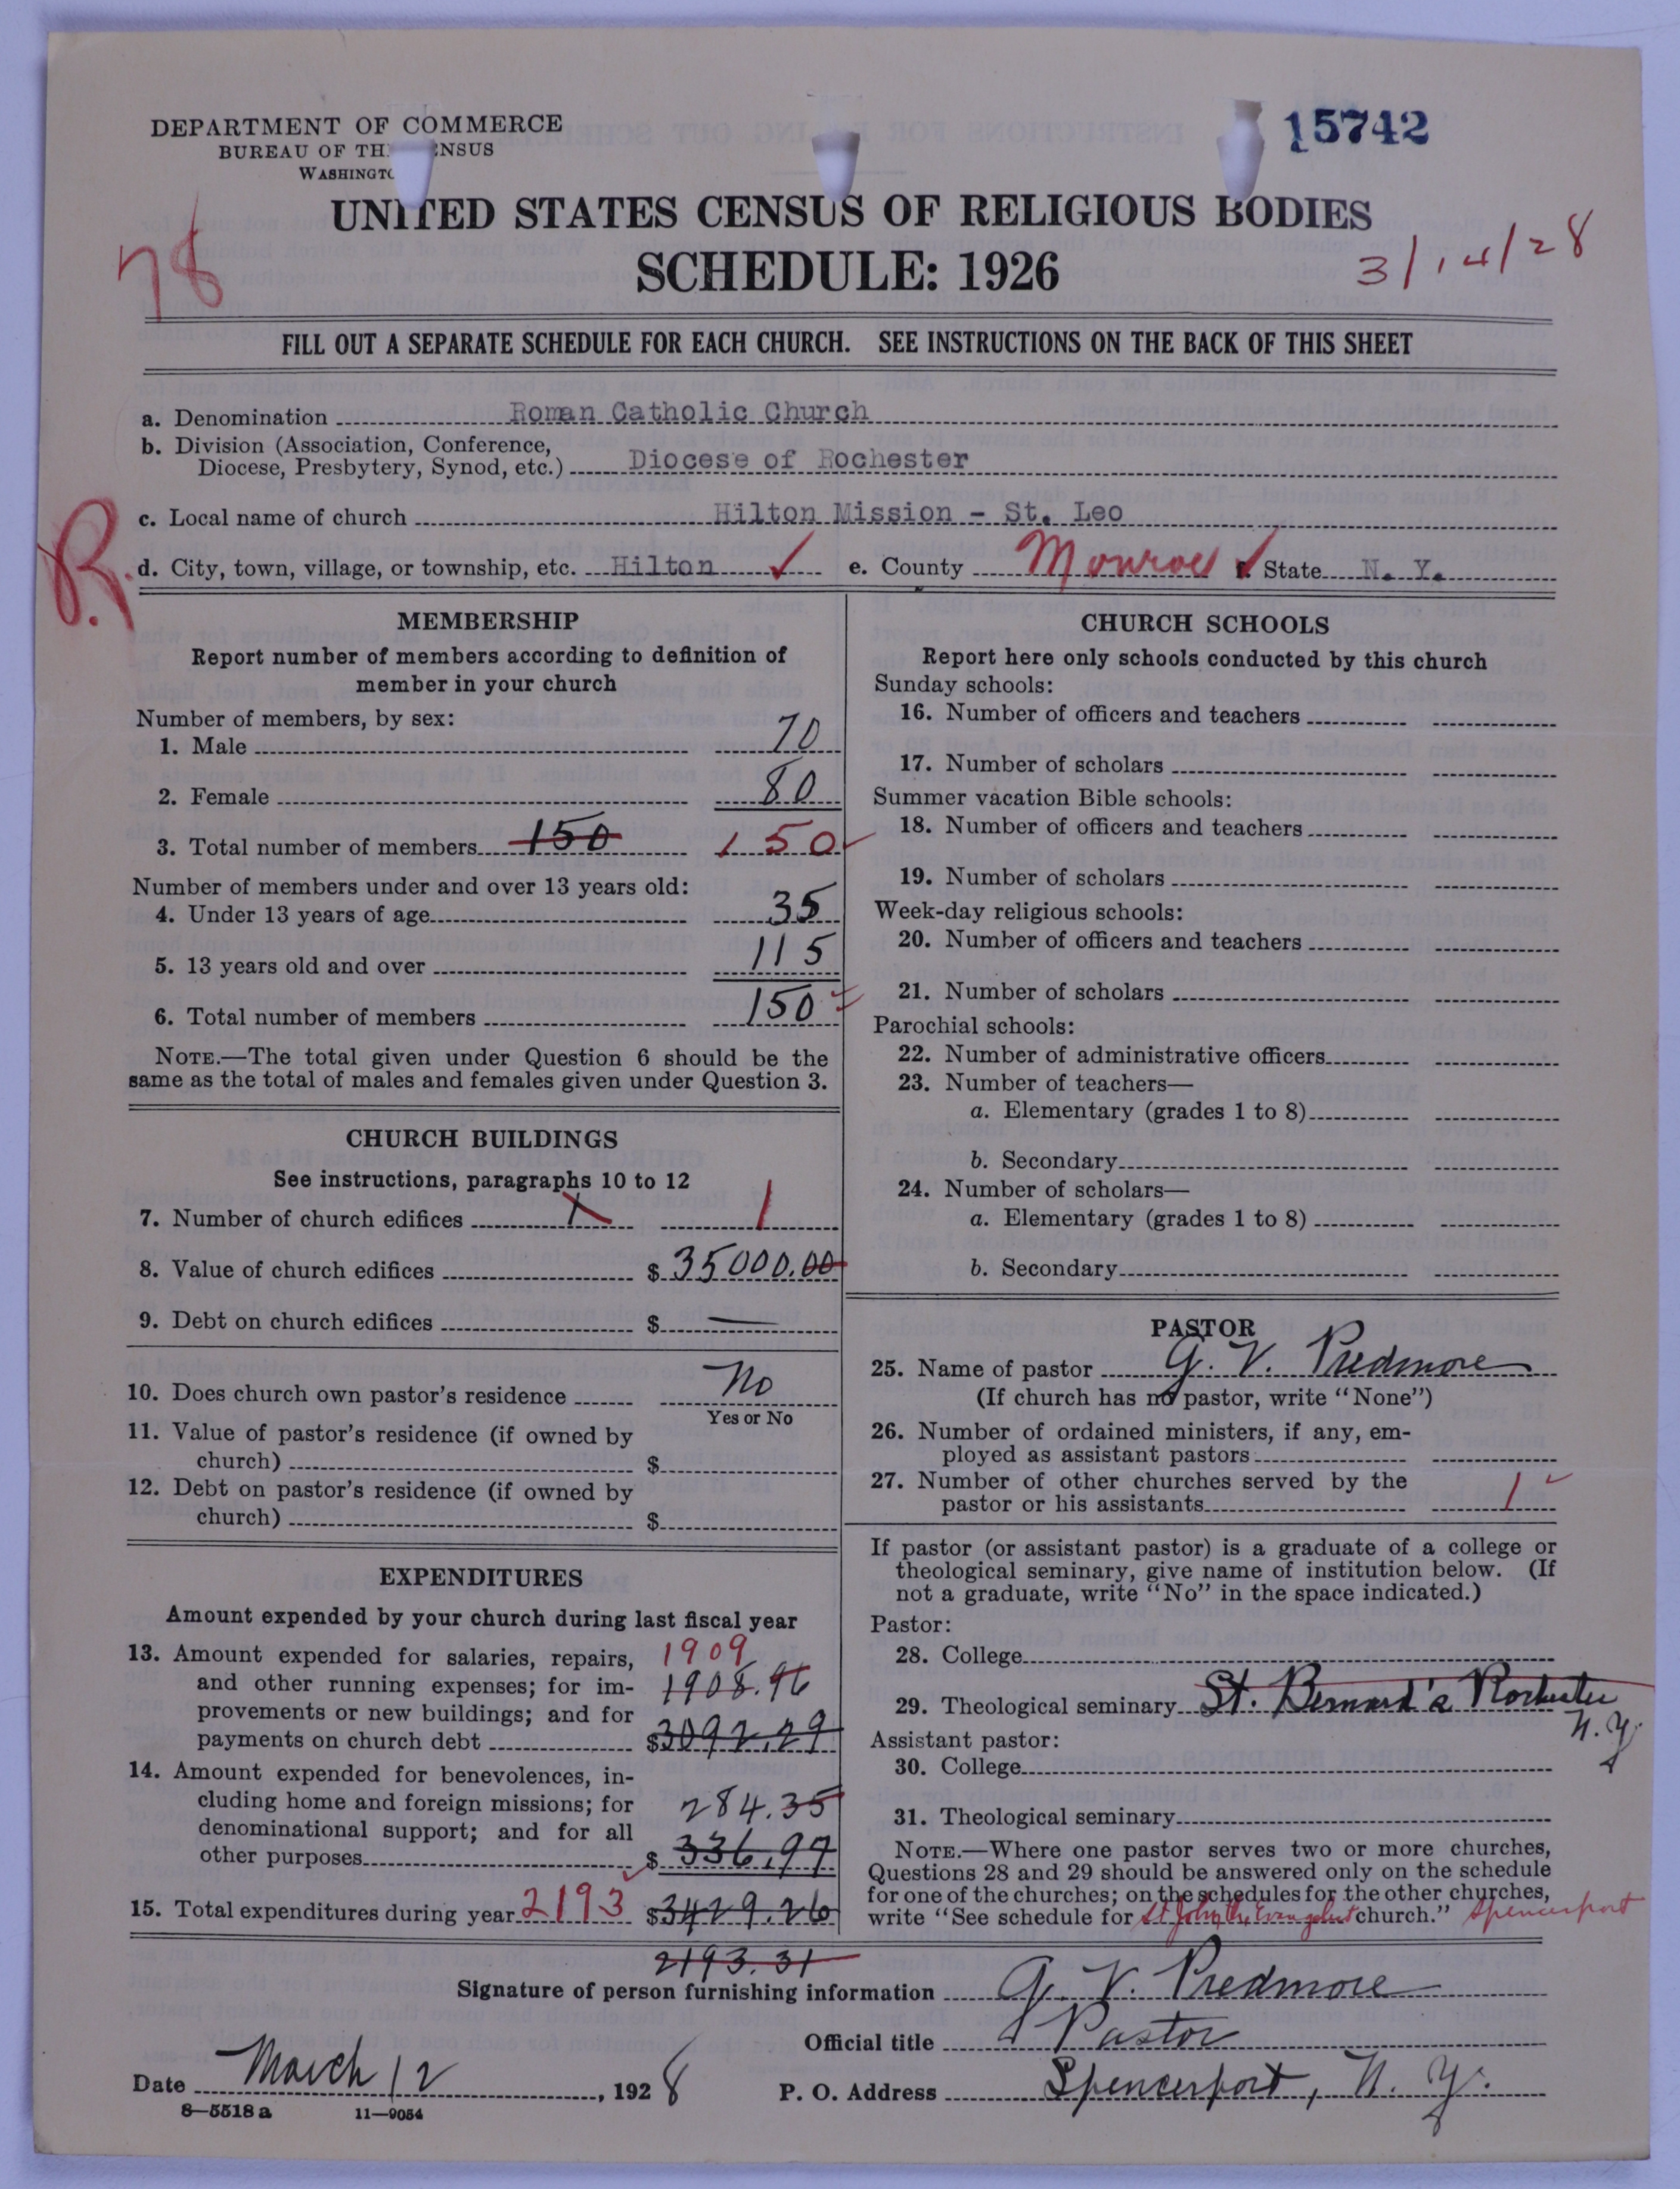 15742
DEPARTMENT OF COMMERCE
BUREAU OF THE CENSUS
WASHINGTO
UNITED STATES CENSUS OF RELIGIOUS BODIES
SCHEDULE: 1926
78
3/14/28
FILL OUT A SEPARATE SCHEDULE FOR EACH CHURCH. SEE INSTRUCTIONS ON THE BACK OF THIS SHEET
a. Denomination Roman Catholic Church
b. Division (Association, Conference,
Diocese, Presbytery, Synod, etc.) Diocese of Rochester
c. Local name of church Hilton Mission - St. Leo
R.
d. City, town, village, or township, etc. Hilton ✓ e. County Monroe ✓ f. State N. Y.
MEMBERSHIP
Report number of members according to definition of
member in your church
Number of members, by sex:
1. Male 70
2. Female 80
3. Total number of members 150 150
Number of members under and over 13 years old:
4. Under 13 years of age 35
5. 13 years old and over 115
6. Total number of members 150
NOTE.—The total given under Question 6 should be the
same as the total of males and females given under Question 3.
CHURCH BUILDINGS
See instructions, paragraphs 10 to 12
7. Number of church edifices 1 1
8. Value of church edifices $ 35000.00
9. Debt on church edifices $ —
10. Does church own pastor's residence No
Yes or No
11. Value of pastor's residence (if owned by
church) $
12. Debt on pastor's residence (if owned by
church) $
EXPENDITURES
Amount expended by your church during last fiscal year
13. Amount expended for salaries, repairs, 1909
and other running expenses; for im- 1908.96
provements or new buildings; and for
payments on church debt $3092.29
14. Amount expended for benevolences, in-
cluding home and foreign missions; for 284.35
denominational support; and for all
other purposes $ 336.97
15. Total expenditures during year 2193 $3429.26
2193.31
CHURCH SCHOOLS
Report here only schools conducted by this church
Sunday schools:
16. Number of officers and teachers
17. Number of scholars
Summer vacation Bible schools:
18. Number of officers and teachers
19. Number of scholars
Week-day religious schools:
20. Number of officers and teachers
21. Number of scholars
Parochial schools:
22. Number of administrative officers
23. Number of teachers—
a. Elementary (grades 1 to 8)
b. Secondary
24. Number of scholars—
a. Elementary (grades 1 to 8)
b. Secondary
PASTOR
25. Name of pastor G. V. Predmore
(If church has no pastor, write "None")
26. Number of ordained ministers, if any, em-
ployed as assistant pastors
27. Number of other churches served by the
pastor or his assistants 1 ✓
If pastor (or assistant pastor) is a graduate of a college or
theological seminary, give name of institution below. (If
not a graduate, write "No" in the space indicated.)
Pastor:
28. College
29. Theological seminary St. Bernard's Rochester
N. Y.
Assistant pastor:
30. College
31. Theological seminary
NOTE.—Where one pastor serves two or more churches,
Questions 28 and 29 should be answered only on the schedule
for one of the churches; on the schedules for the other churches,
write "See schedule for St John the Evangelist church." Spencerport
Signature of person furnishing information G. V. Predmore
Official title Pastor
Date March 12, 1928 P. O. Address Spencerport, N. Y.
8—5518 a 11—9054